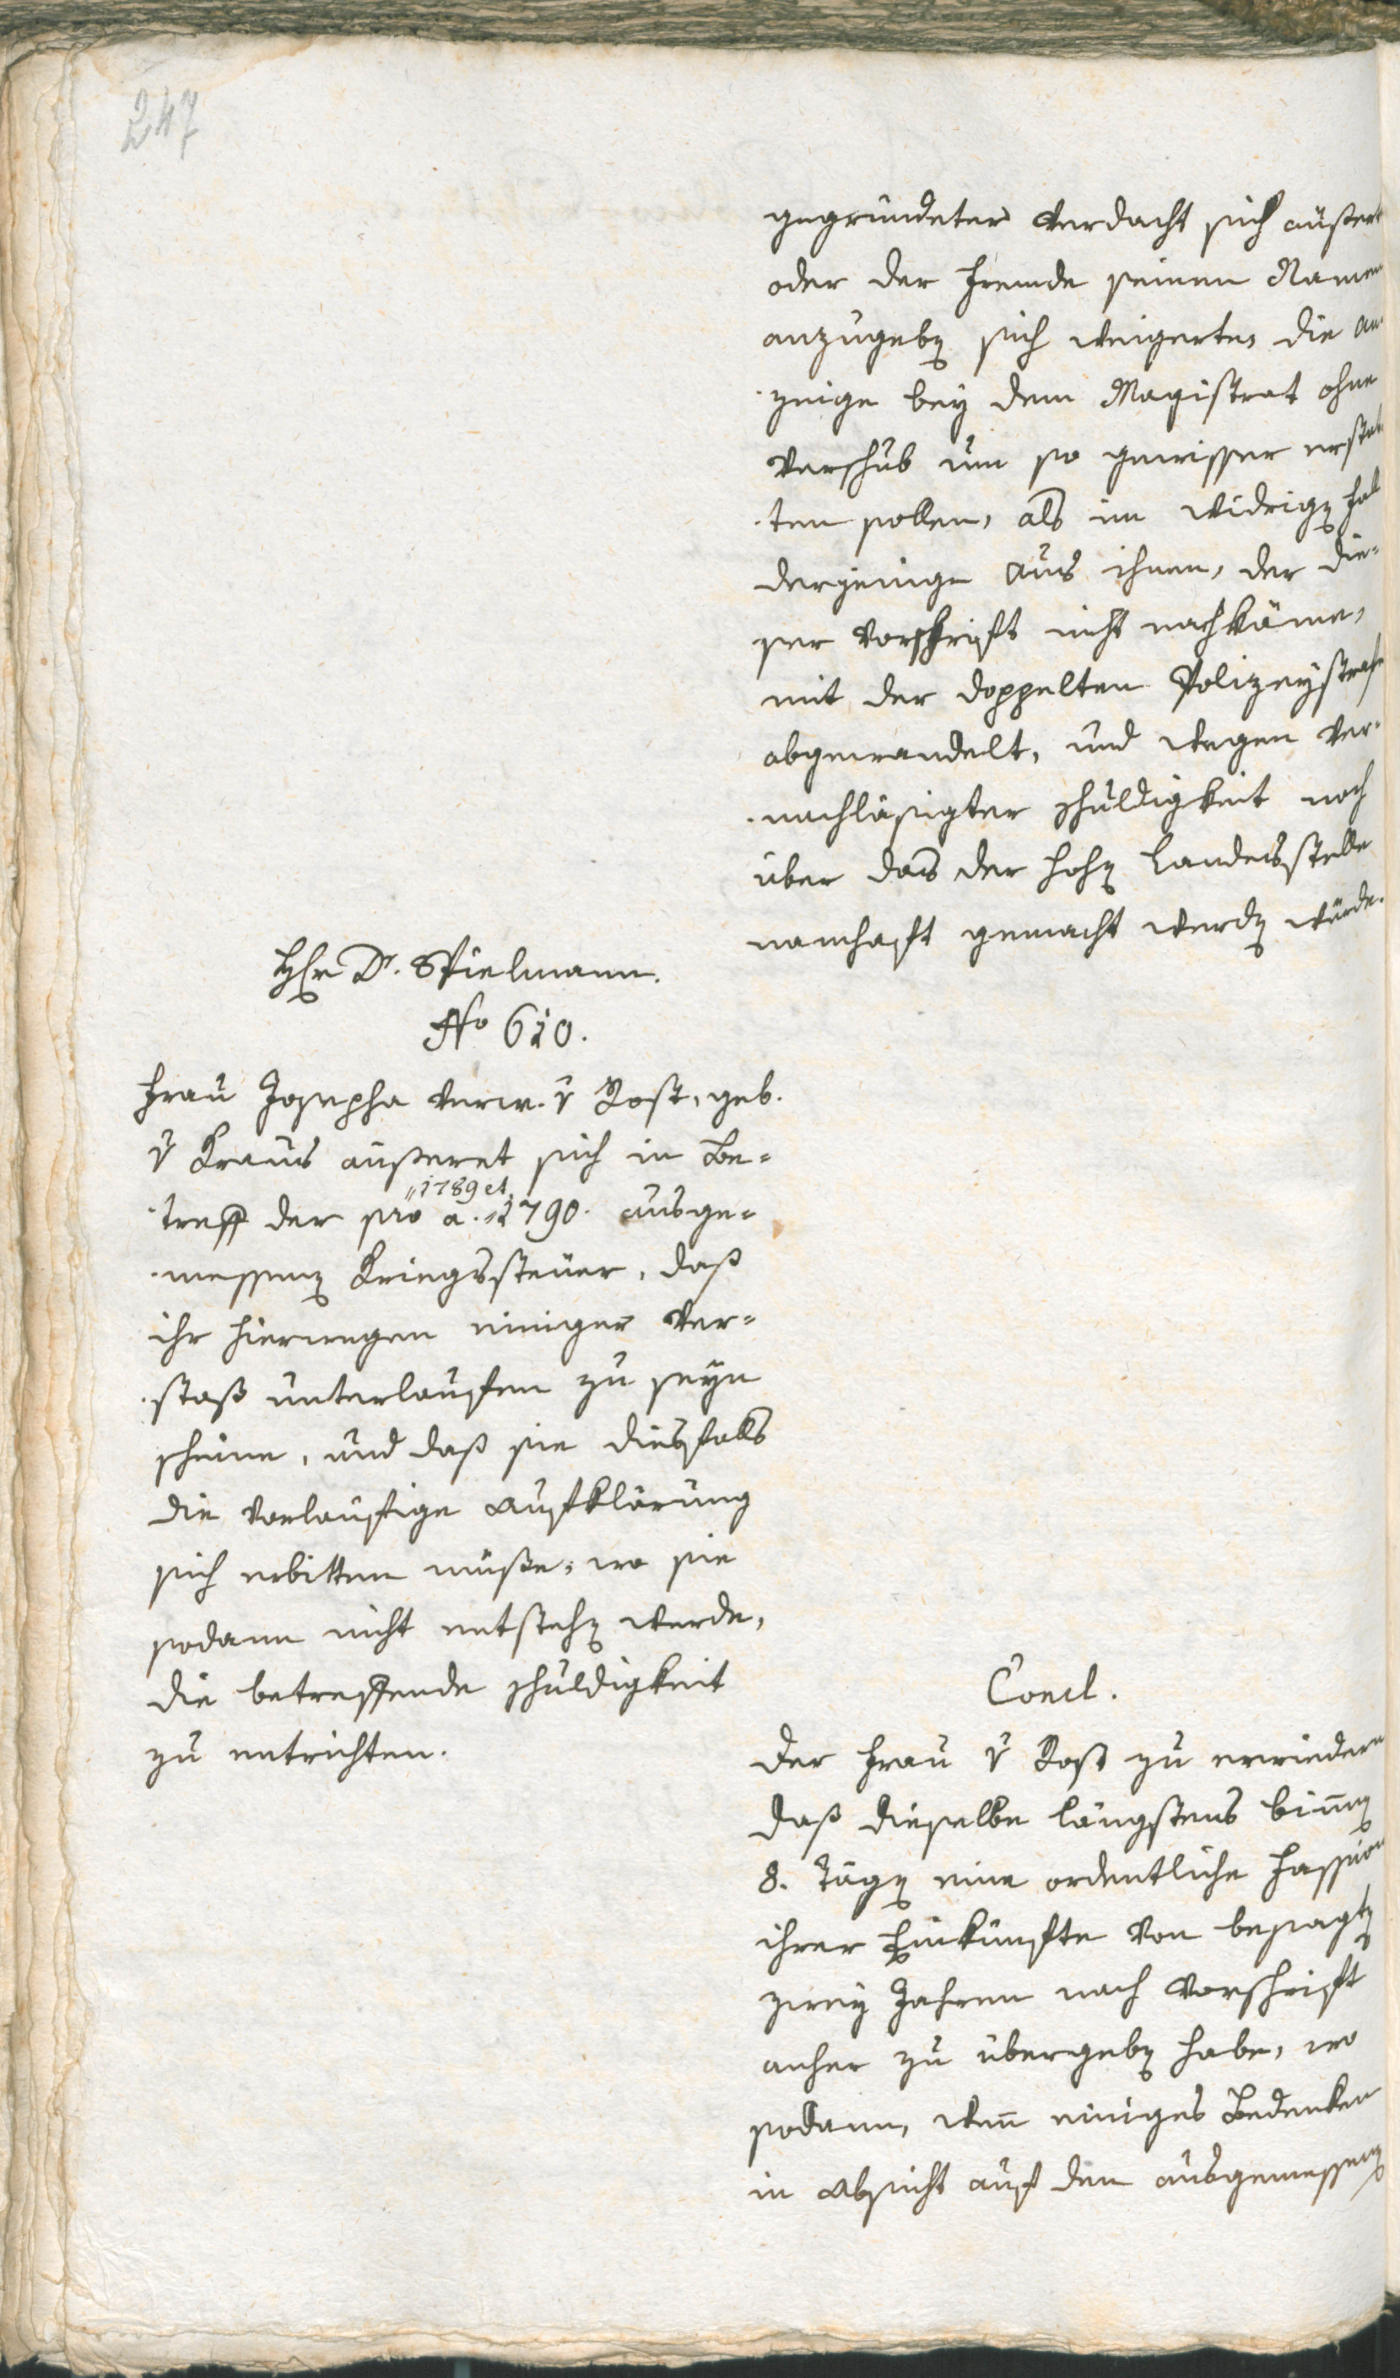 247
gegründeter Verdacht sich äußert
oder der Fremde seinen Namen
anzugeben sich weigerte, die An-
zeige bey dem Magistrat ohne
Verschub um so gewisser erstat-
ten sollen, als im widrigen Fal
derjenige aus ihnen, der die-
ser Vorschrift nicht nachkäme,
mit der doppelten Polizeystrafe
abgewandelt, und wegen ver-
nachläßigter Schuldigkeit noch
über das der hohen Landesstelle
namhaft gemacht werden würde.
Hr Dr. Spielmann.
No 610.
Frau Josepha verw. v Rost, geb.
v Kraus äußeret sich in Be-
treff der pro a. 1789 et 1790. ausge-
messenen Kriegssteuer, daß
ihr hierwegen einiger Ver-
stoß unterlauffen zu seyn
scheine, und daß sie diesfalls
die vorläuffige Aufklärung
sich erbitten müße, wo sie
sodann nicht entstehen werde,
die betreffende Schuldigkeit
zu entrichten.
Concl.
Der Frau v Rost zu erwiedern
daß dieselbe längstens binnen
8. Tägen eine ordentliche Fassion
ihrer Einkünfte von besagten
zwey Jahren nach Vorschrift
anher zu übergeben habe, wo
sodann, wenn einiges Bedenken
in Absicht auf den ausgemessenen